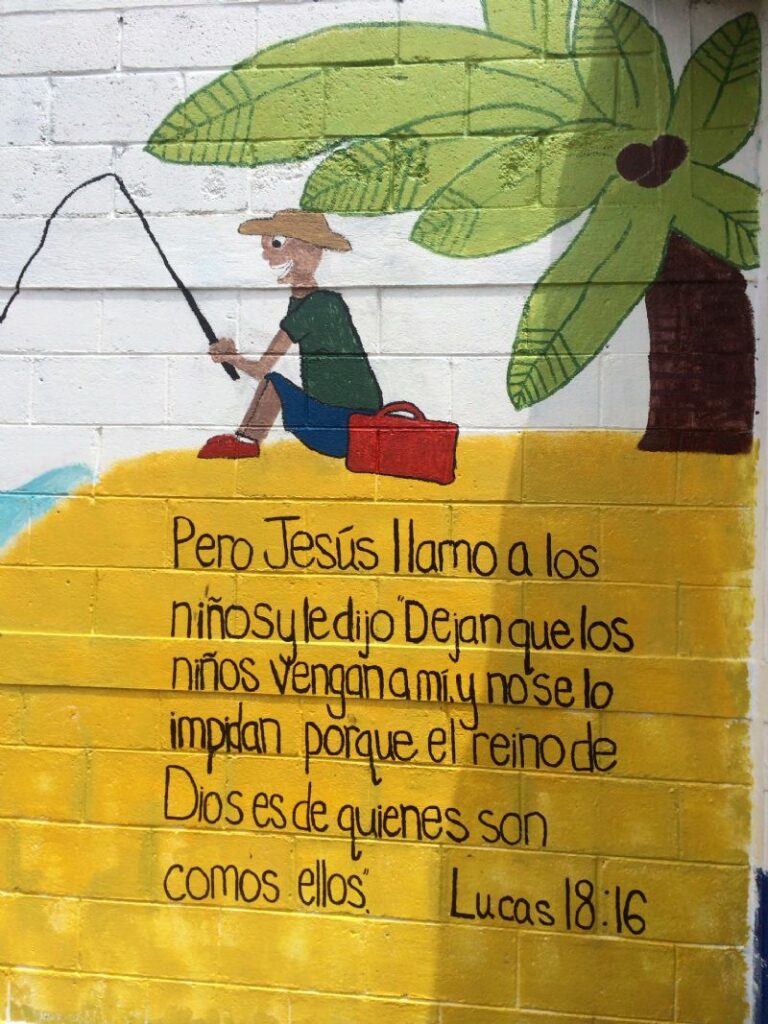 Pero Jesús llamo a los
niños y le dijo "Dejan que los
niños vengan a mí, y no se lo
impidan porque el reino de
Dios es de quienes son
comos ellos".
Lucas 18:16